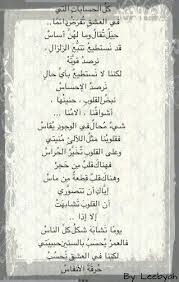 كل الحسابات التي
في العشق تفرض دائماً..
جبل تقال وما لهن أساس
قد نستطيع تتبع الزلزال..
نرصد قوته
لكننا لا نستطيع بأي حال
نرصد الإحساس
نبض القلوب، حنينها،
أشواقنا..
شيء محال في الوجود يقاس
فقلوبنا مثل اللآلئ منيتي
وعلى القلوب تخير الحراس
فهناك قلب من حجر
وهناك قلب قطعة من ماس
إياك أن تتصوري
أن القلوب تشابهت
إلا إذا ..
يوماً تشابه شكل كل الناس
فالعمر يحسب بالسنين حبيبتي
لكننا في العشق يحسب
حرقة الأنفاس
By Leebyah